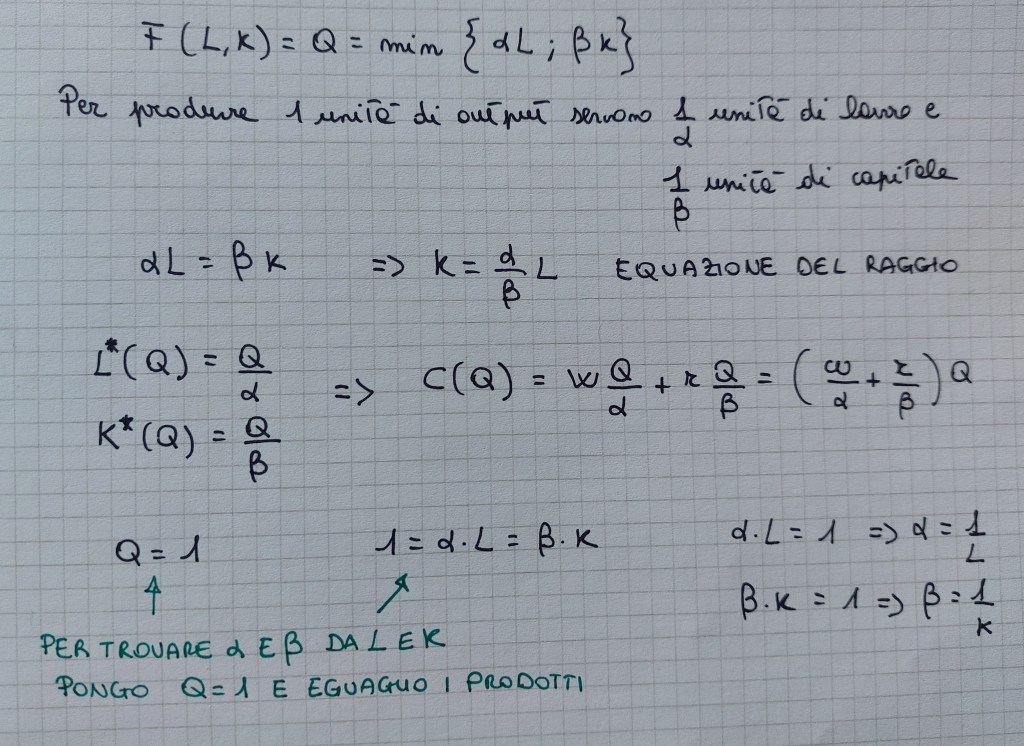 F(L,K) = Q = min { αL ; βK}
Per produrre 1 unità di output servono 1/α unità di lavoro e
1/β unità di capitale
αL = βK => K = α/β L EQUAZIONE DEL RAGGIO
L*(Q) = Q/α
K*(Q) = Q/β
=> C(Q) = w Q/α + r Q/β = (w/α + r/β) Q
Q = 1
1 = α·L = β·K
α·L = 1 => α = 1/L
β·K = 1 => β = 1/K
PER TROVARE α E β DA L E K
PONGO Q=1 E EGUAGLIO I PRODOTTI